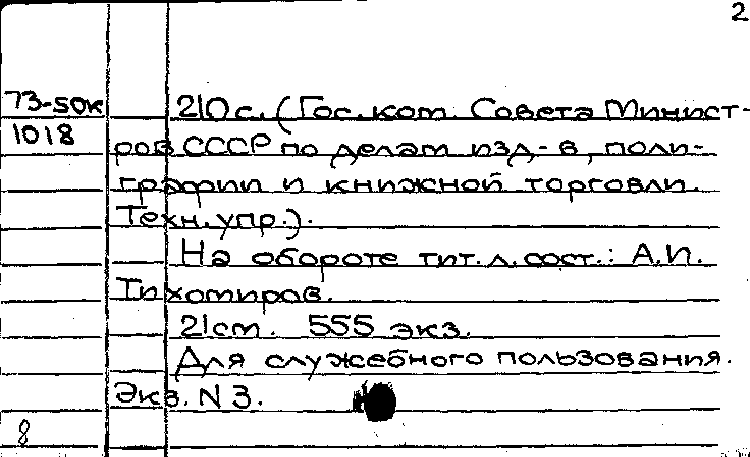 2
73-50к 210 с. (Гос. ком. Совета Минист-
1018 ров СССР по делам изд-в, поли-
графии и книжной торговли.
Техн. упр.).
На обороте тит. л. сост.: А.И.
Тихомиров.
21 см. 555 экз.
Для служебного пользования.
Экз. N 3.
8